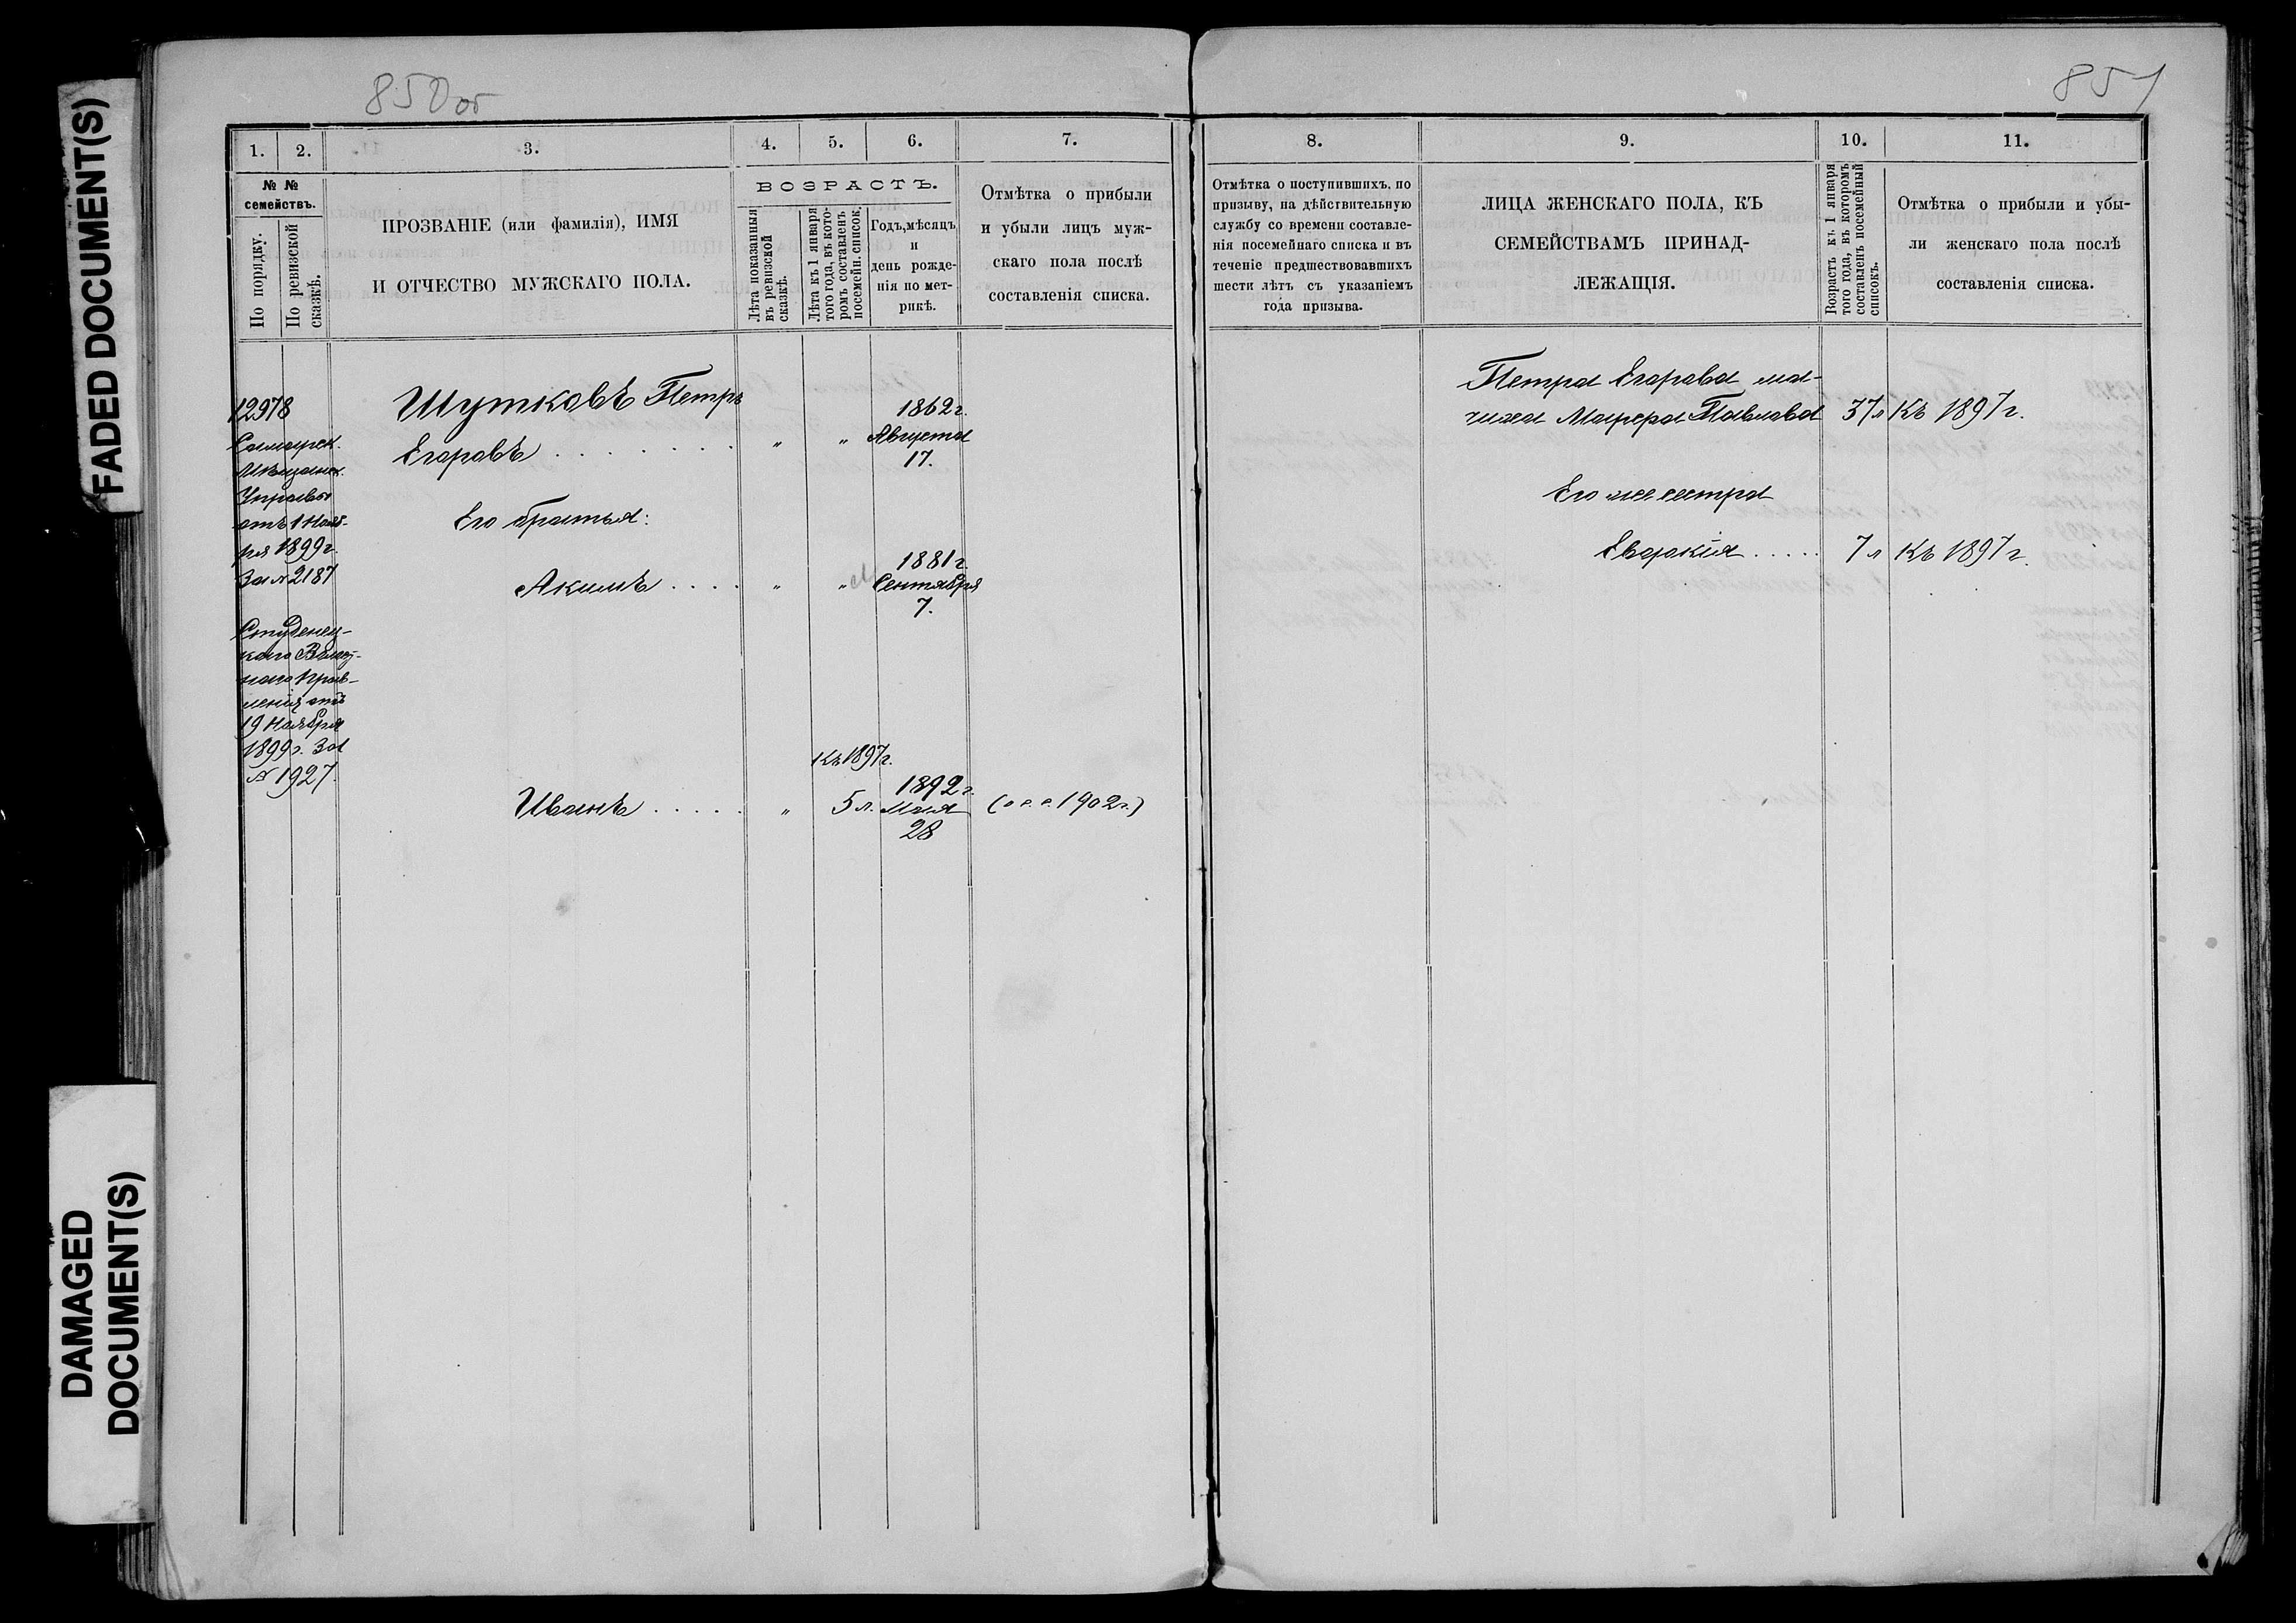 FADED DOCUMENT(S)
DAMAGED
DOCUMENT(S)
850 об
1. 2. 3. 4. 5. 6. 7.
№ №
семействъ.
По порядку.
По ревизской
сказкѣ.
ПРОЗВАНІЕ (или фамилія), ИМЯ
И ОТЧЕСТВО МУЖСКАГО ПОЛА.
ВОЗРАСТЪ.
Лѣта показанныя
въ ревизской
сказкѣ.
Лѣта къ 1 января
того года, въ кото-
ромъ составленъ
посемейн. список.
Годъ, мѣсяцъ
и
день рожде-
нія по мет-
рикѣ.
Отмѣтка о прибыли
и убыли лицъ муж-
скаго пола послѣ
составленія списка.
12978
Самарск.
Мѣщанск.
Управы
отъ 1 Нояб-
ря 1899 г.
За № 2187
Студенец-
каго Волост-
наго Прав-
ленія отъ
19 Ноября
1899 г. За
№ 1927.
Шутковъ Петръ
Егоровъ . . . . . . . " "
1862 г.
Августа
17.
Его братья:
Акимъ . . . . " "
1881 г.
Сентября
7.
Къ 1897 г.
Иванъ . . . . . " 5 л.
1892 г.
Мая
28
1902 г.)
851
8. 9. 10. 11.
Отмѣтка о поступившихъ, по
призыву, на дѣйствительную
службу со времени составле-
нія посемейнаго списка и въ
теченіе предшествовавшихъ
шести лѣтъ съ указаніемъ
года призыва.
ЛИЦА ЖЕНСКАГО ПОЛА, КЪ
СЕМЕЙСТВАМЪ ПРИНАД-
ЛЕЖАЩІЯ.
Возрастъ къ 1 января
того года, въ которомъ
составленъ посемейный
списокъ.
Отмѣтка о прибыли и убы-
ли женскаго пола послѣ
составленія списка.
Петра Егорова ма-
чиха Марфа Павлова 37 л Къ 1897 г.
Его же сестра
Евдокія . . . . . 7 л Къ 1897 г.